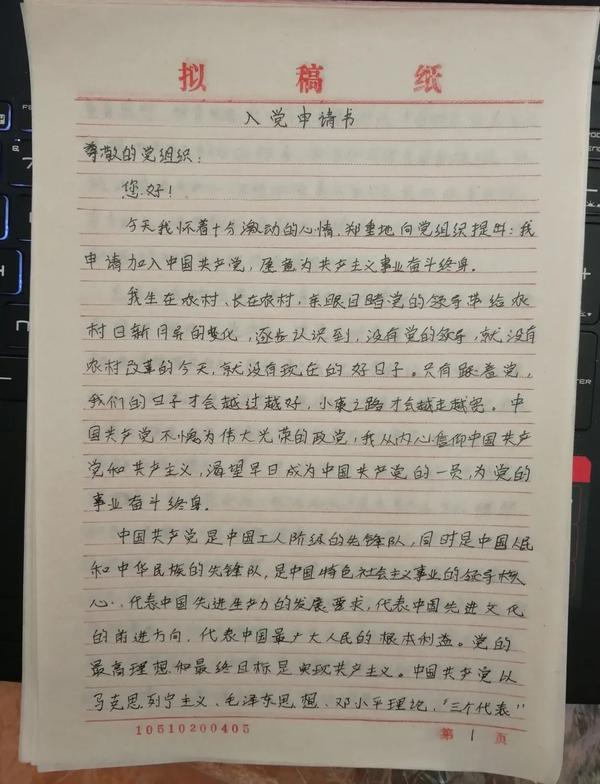 拟稿纸
入党申请书
尊敬的党组织:
您好!
今天我怀着十分激动的心情,郑重地向党组织提出:我
申请加入中国共产党,愿意为共产主义事业奋斗终身。
我生在农村、长在农村,亲眼目睹党的领导带给农
村日新月异的变化,逐步认识到,没有党的领导,就没有
农村改革的今天,就没有现在的好日子。只有跟着党,
我们的日子才会越过越好,小康之路才会越走越宽。中
国共产党不愧为伟大光荣的政党,我从内心信仰中国共产
党和共产主义,渴望早日成为中国共产党的一员,为党的
事业奋斗终身。
中国共产党是中国工人阶级的先锋队,同时是中国人民
和中华民族的先锋队,是中国特色社会主义事业的领导核
心,代表中国先进生产力的发展要求,代表中国先进文化
的前进方向,代表中国最广大人民的根本利益。党的
最高理想和最终目标是实现共产主义。中国共产党以
马克思列宁主义、毛泽东思想、邓小平理论、“三个代表”
10510200405
第 1 页